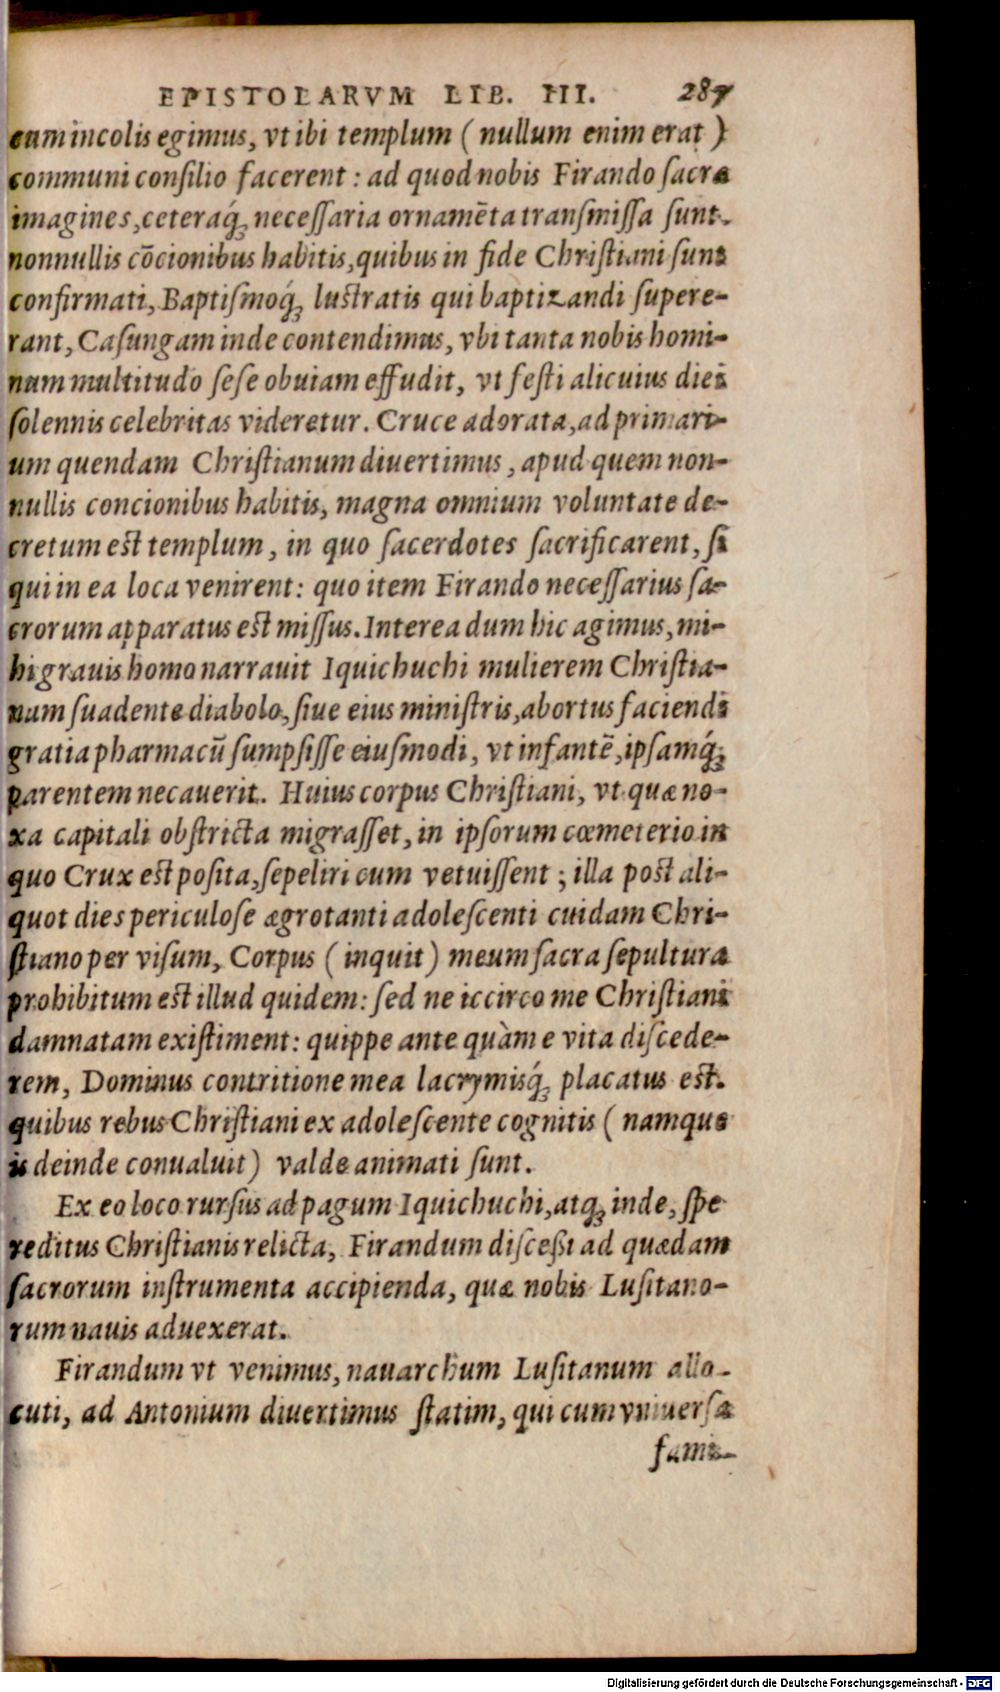 EPISTOLARVM LIB. III. 287
cum incolis egimus, vt ibi templum ( nullum enim erat )
communi consilio facerent : ad quod nobis Firando sacra
imagines, ceteraq́ꝫ necessaria ornamẽta transmissa sunt.
nonnullis cõcionibus habitis, quibus in fide Christiani sunt
confirmati, Baptismoq́ꝫ lustratis qui baptizandi supere-
rant, Casungam inde contendimus, vbi tanta nobis homi-
num multitudo sese obuiam effudit, vt festi alicuius diei
solennis celebritas videretur. Cruce adorata, ad primari-
um quendam Christianum diuertimus, apud quem non-
nullis concionibus habitis, magna omnium voluntate de-
cretum est templum, in quo sacerdotes sacrificarent, si
qui in ea loca venirent: quo item Firando necessarius sa-
crorum apparatus est missus. Interea dum hic agimus, mi-
hi grauis homo narrauit Iquichuchi mulierem Christia-
nam suadente diabolo, siue eius ministris, abortus faciendi
gratia pharmacũ sumpsisse eiusmodi, vt infantẽ, ipsamq́ꝫ
parentem necauerit. Huius corpus Christiani, vt quæ no-
xa capitali obstricta migrasset, in ipsorum cœmeterio in
quo Crux est posita, sepeliri cum vetuissent ; illa post ali-
quot dies periculose ægrotanti adolescenti cuidam Chri-
stiano per visum, Corpus ( inquit ) meum sacra sepultura
prohibitum est illud quidem: sed ne iccirco me Christiani
damnatam existiment: quippe ante quàm e vita discede-
rem, Dominus contritione mea lacrymisq́ꝫ placatus est.
quibus rebus Christiani ex adolescente cognitis ( namque
is deinde conualuit ) valde animati sunt.
Ex eo loco rursus ad pagum Iquichuchi, atqꝫ inde, spe
reditus Christianis relicta, Firandum disceßi ad quædam
sacrorum instrumenta accipienda, quæ nobis Lusitano-
rum nauis aduexerat.
Firandum vt venimus, nauarchum Lusitanum allo-
cuti, ad Antonium diuertimus statim, qui cum vniuersa
fami-
Digitalisierung gefördert durch die Deutsche Forschungsgemeinschaft - DFG